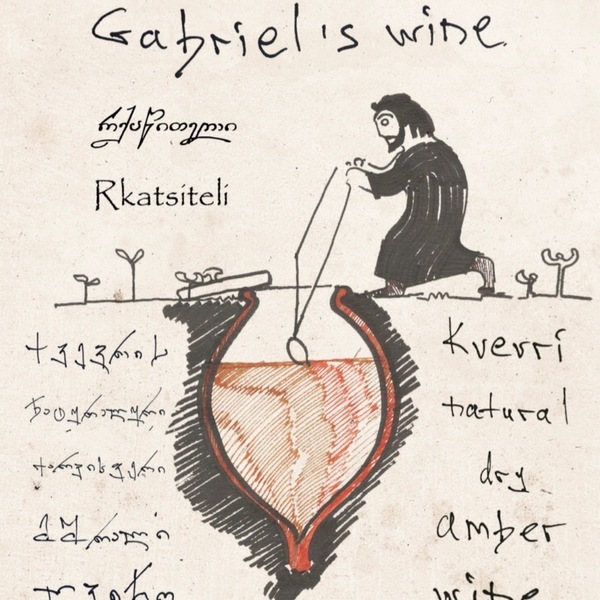 Gabriel's wine
რქაწითელი
Rkatsiteli
ქვევრის
ნატურალური
ქარვისფერი
მშრალი
ღვინო
Kvevri
natural
dry
amber
wine